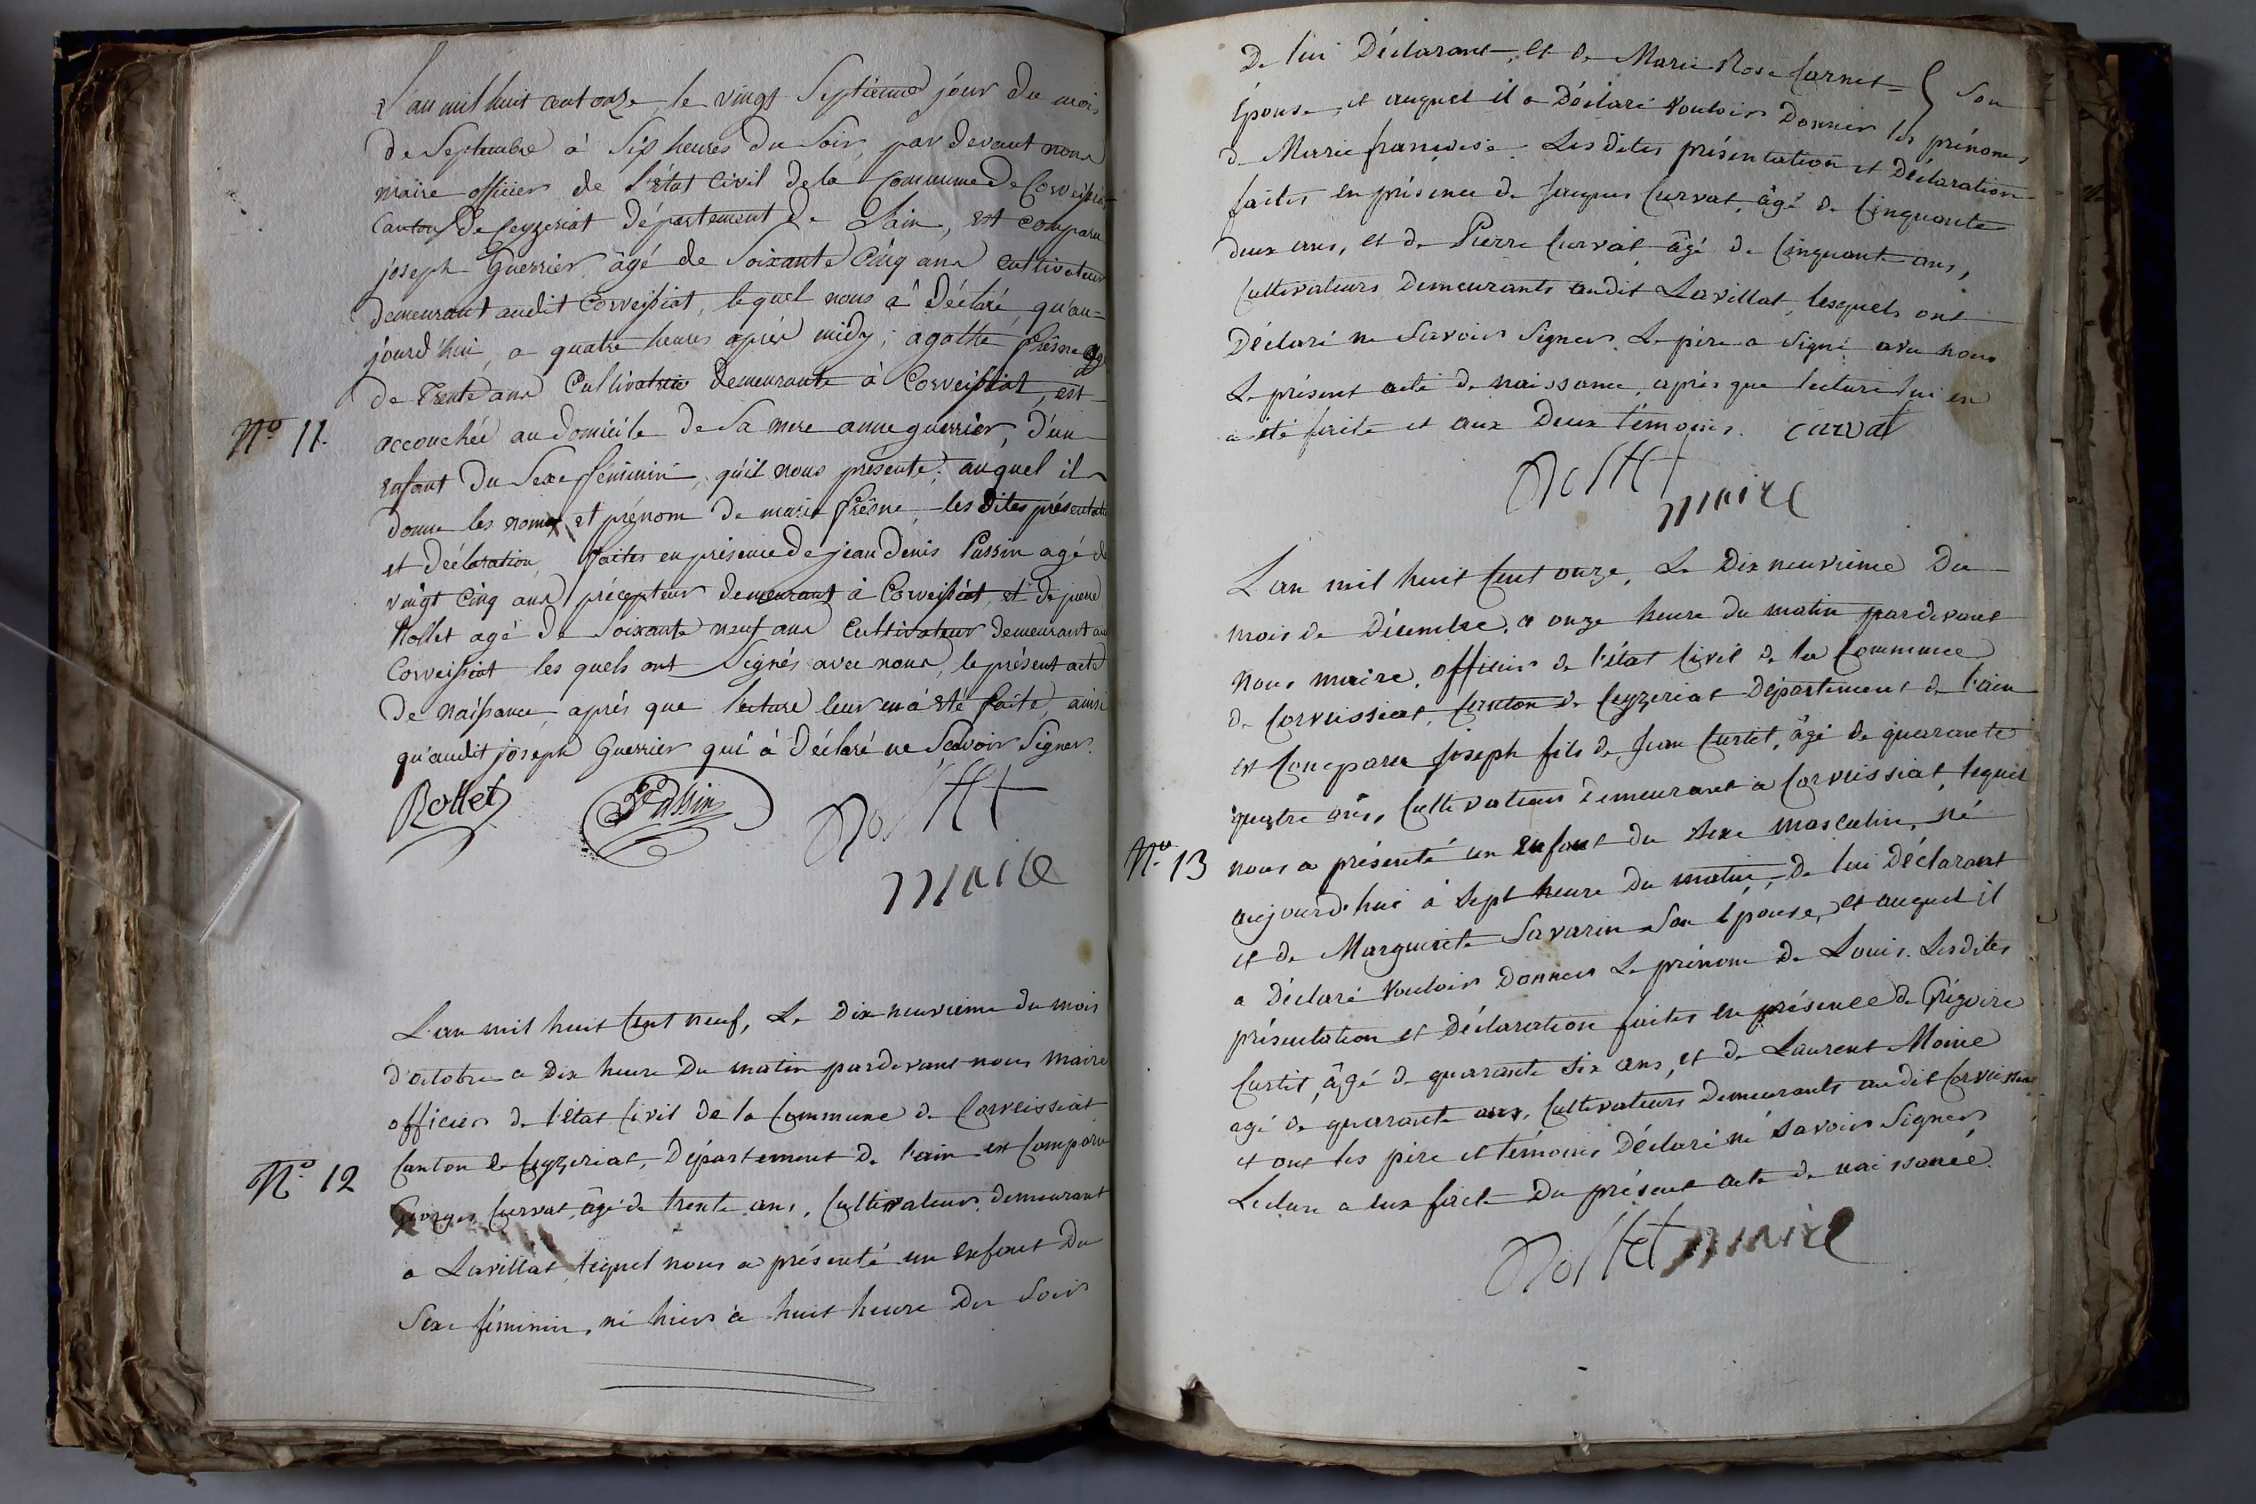 L'an mil huit cent onze, le vingt Septieme jour du mois
de Septembre à Six heures du Soir, par devant nous
maire officier de l'état Civil de la Commune de Corveissiat
Canton de Ceyzeriat département de Lain, est comparu
joseph Guerrier âgé de Soixante Cinq ans cultivateur
demeurant audit Corveissiat, lequel nous à Déclaré, qu'au=
jourd'hui, a quatre heures après midy, agathe frêsne agé
de Trente ans Cultivatrice demeurante à Corveissiat, est
Nº 11. accouchée au domicile de Sa mere anne guerrier, d'un
enfant du Sexe féminin, qu'il nous présente; auquel il
donne les noms et prénom de marie frêsne, les dites présentation
et Déclaration, faites en présence de jean Denis Pussin agé de
vingt Cinq ans précepteur demeurant à Corveissiat, et de pierre
Rollet agé de Soixante neuf ans Cultivateur demeurant au
Corveissiat les quels ont Signés avec nous, le présent acte
de naissance, aprés que lecture leur en à été faite, ainsi
qu'audit joseph Guerrier qui à Déclaré ne Scavoir Signer.
Rollet Pussin Rollet
maire
L'an mil huit Cent neuf, Le Dix neuvieme du mois
d'octobre a Dix heure Du matin pardevant nous Maire
officier de l'état Civil de la Commune de Corveissiat
Canton de Ceyzeriat, Département de l'ain est Comparu
Nº 12 Georges Curvat, âgé de trente ans, Cultivateur, demeurant
a Lavillat, lequel nous a présenté un Enfant Du
Sexe féminin, né hier à huit heure Du Soir
De lui Déclarant, et de Marie Rose Carnet = Son
Épouse, et auquel il a Déclaré Vouloir Donner les prénoms
de Marie françoise. Les dites présentation et Déclaration
faites en présence de Jacques Curvat, âgé de Cinquante
deux ans, et de Pierre Curvat âgé de Cinquante ans,
Cultivateurs Demeurants audit Lavillat, lesquels ont
Déclaré ne Savoir Signer. Le père a Signé avec nous
Le présent acte de naissance, après que lecture lui en
a été faite et aux Deux témoins. curvat
Rollet
maire
L'an mil huit Cent onze, Le Dix neuvieme Du
mois de Décembre, a onze heure du matin pardevant
Nous maire, officier de l'état Civil de la Commune
de Corveissiat, Canton de Ceyzeriat Département de l'ain
est Comparu Joseph fils de Jean Curtet, âgé de quarante
quatre ans, Cultivateur Demeurant a Corveissiat, lequel
Nº 13 nous a présenté un Enfant du Sexe masculin, né
aujourd'hui à Sept heure du matin, De lui Déclarant
et de Marguerite Savarin Son Épouse, et auquel il
a Déclaré Vouloir Donner Le prénom de Louis. Lesdites
présentation et Déclaration faites en présence de Grégoire
Curtet, âgé de quarante Six ans, et de Laurent Moine
agé de quarante ans, Cultivateurs Demeurants audit Corveissiat
et ont les père et témoins Déclaré né Savoir Signer
Lecture a eux faite Du présent acte de naissance.
Rollet maire